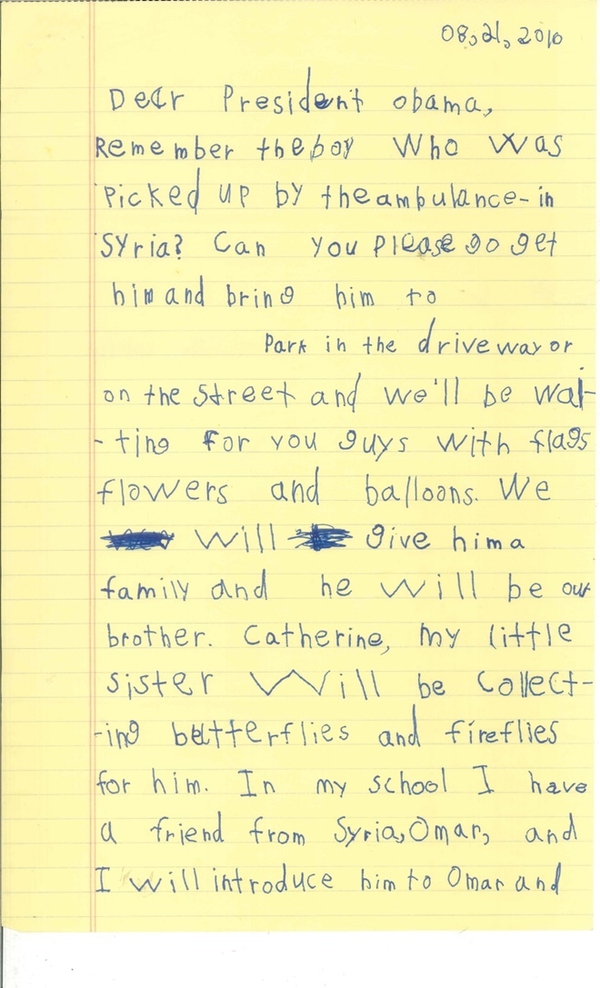 08,21,2010
Dear President obama,
Remember the boy who was
picked up by the ambulance- in
Syria? Can you please go get
him and bring him to
Park in the driveway or
on the street and we'll be wai-
-ting for you guys with flags
flowers and balloons. We
will give him a
family and he will be our
brother. Catherine, my little
sister will be collect-
-ing butterflies and fireflies
for him. In my school I have
a friend from Syria, Omar, and
I will introduce him to Omar and